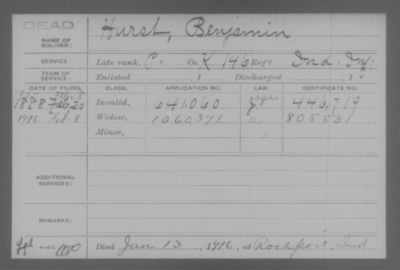 DEAD
NAME OF SOLDIER: Hurst, Benjamin
SERVICE: Late rank, P. Co. K 146 Reg't Ind. Inf.
TERM OF SERVICE: Enlisted , 1 Discharged , 1
DATE OF FILING. CLASS. APPLICATION NO. LAW. CERTIFICATE NO.
1888 Feb 20 Invalid, 641,060 446,719
1916 Feb 8 Widow, 1060371 805531
Minor,
ADDITIONAL SERVICES:
REMARKS:
Died Jan 13, 1916, at Rockport, Ind.